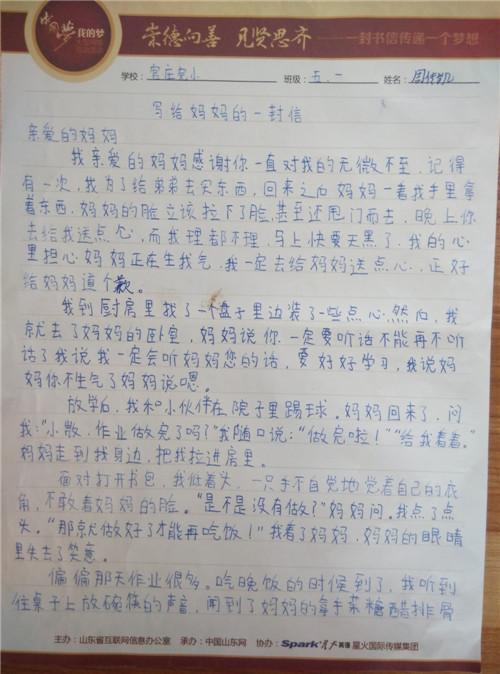 中国梦 我的梦
崇德向善 见贤思齐 一封书信传递一个梦想
学校：官庄完小 班级：五.一 姓名：
写给妈妈的一封信
亲爱的妈妈
我亲爱的妈妈感谢你一直对我的无微不至，记得
有一次，我为了给弟弟去买东西，回来之后妈妈一看我手里拿
着东西，妈妈的脸立该拉下了脸，甚至还甩门而去，晚上你
去给我送点心，而我理都不理，马上快要天黑了，我的心
里担心妈妈正在生我气，我一定去给妈妈送点心，正好
给妈妈道个歉。
我到厨房里找了一个盘子里边装了一些点心，然后，我
就去了妈妈的卧室，妈妈说你一定要听话不能再不听
话了我说我一定会听妈妈您的话，要好好学习，我说妈
妈你不生气了妈妈说嗯。
放学后，我和小伙伴在院子里踢球。妈妈回来了，问
我：“小散，作业做完了吗？”我随口说：“做完啦！”“给我看看。”
妈妈走到我身边，把我拉进房里。
面对打开书包，我低着头，一只手不自觉地觉着自己的衣
角，不敢看妈妈的脸。“是不是没有做？”妈妈问。我点了点
头。“那就做好了才能再吃饭！”我看了妈妈，妈妈的眼睛
里失去了笑意。
偏偏那天作业很多。吃晚饭的时候到了，我听到
往桌子上放碗筷的声音，闻到了妈妈的拿手菜糖醋排骨
主办：山东省互联网信息办公室 承办：中国山东网 协办：Spark星火英语 星火国际传媒集团